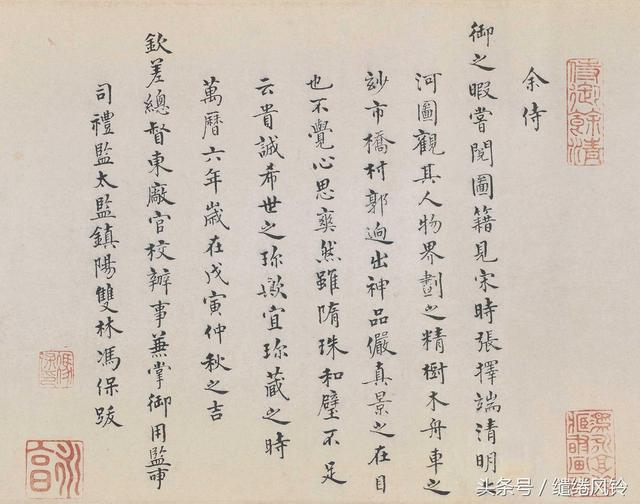 侍御餘清
余侍
御之暇嘗閱圖籍見宋時張擇端清明上
河圖觀其人物界劃之精樹木舟車之
玅市橋村郭迥出神品儼真景之在目
也不覺心思爽然雖隋珠和璧不足
云貴誠希世之珎歟宜珎藏之時
萬曆六年歲在戊寅仲秋之吉
欽差總督東廠官校辦事兼掌御用監事
司禮監太監鎮陽雙林馮保跋
头条号 / 缱绻风铃